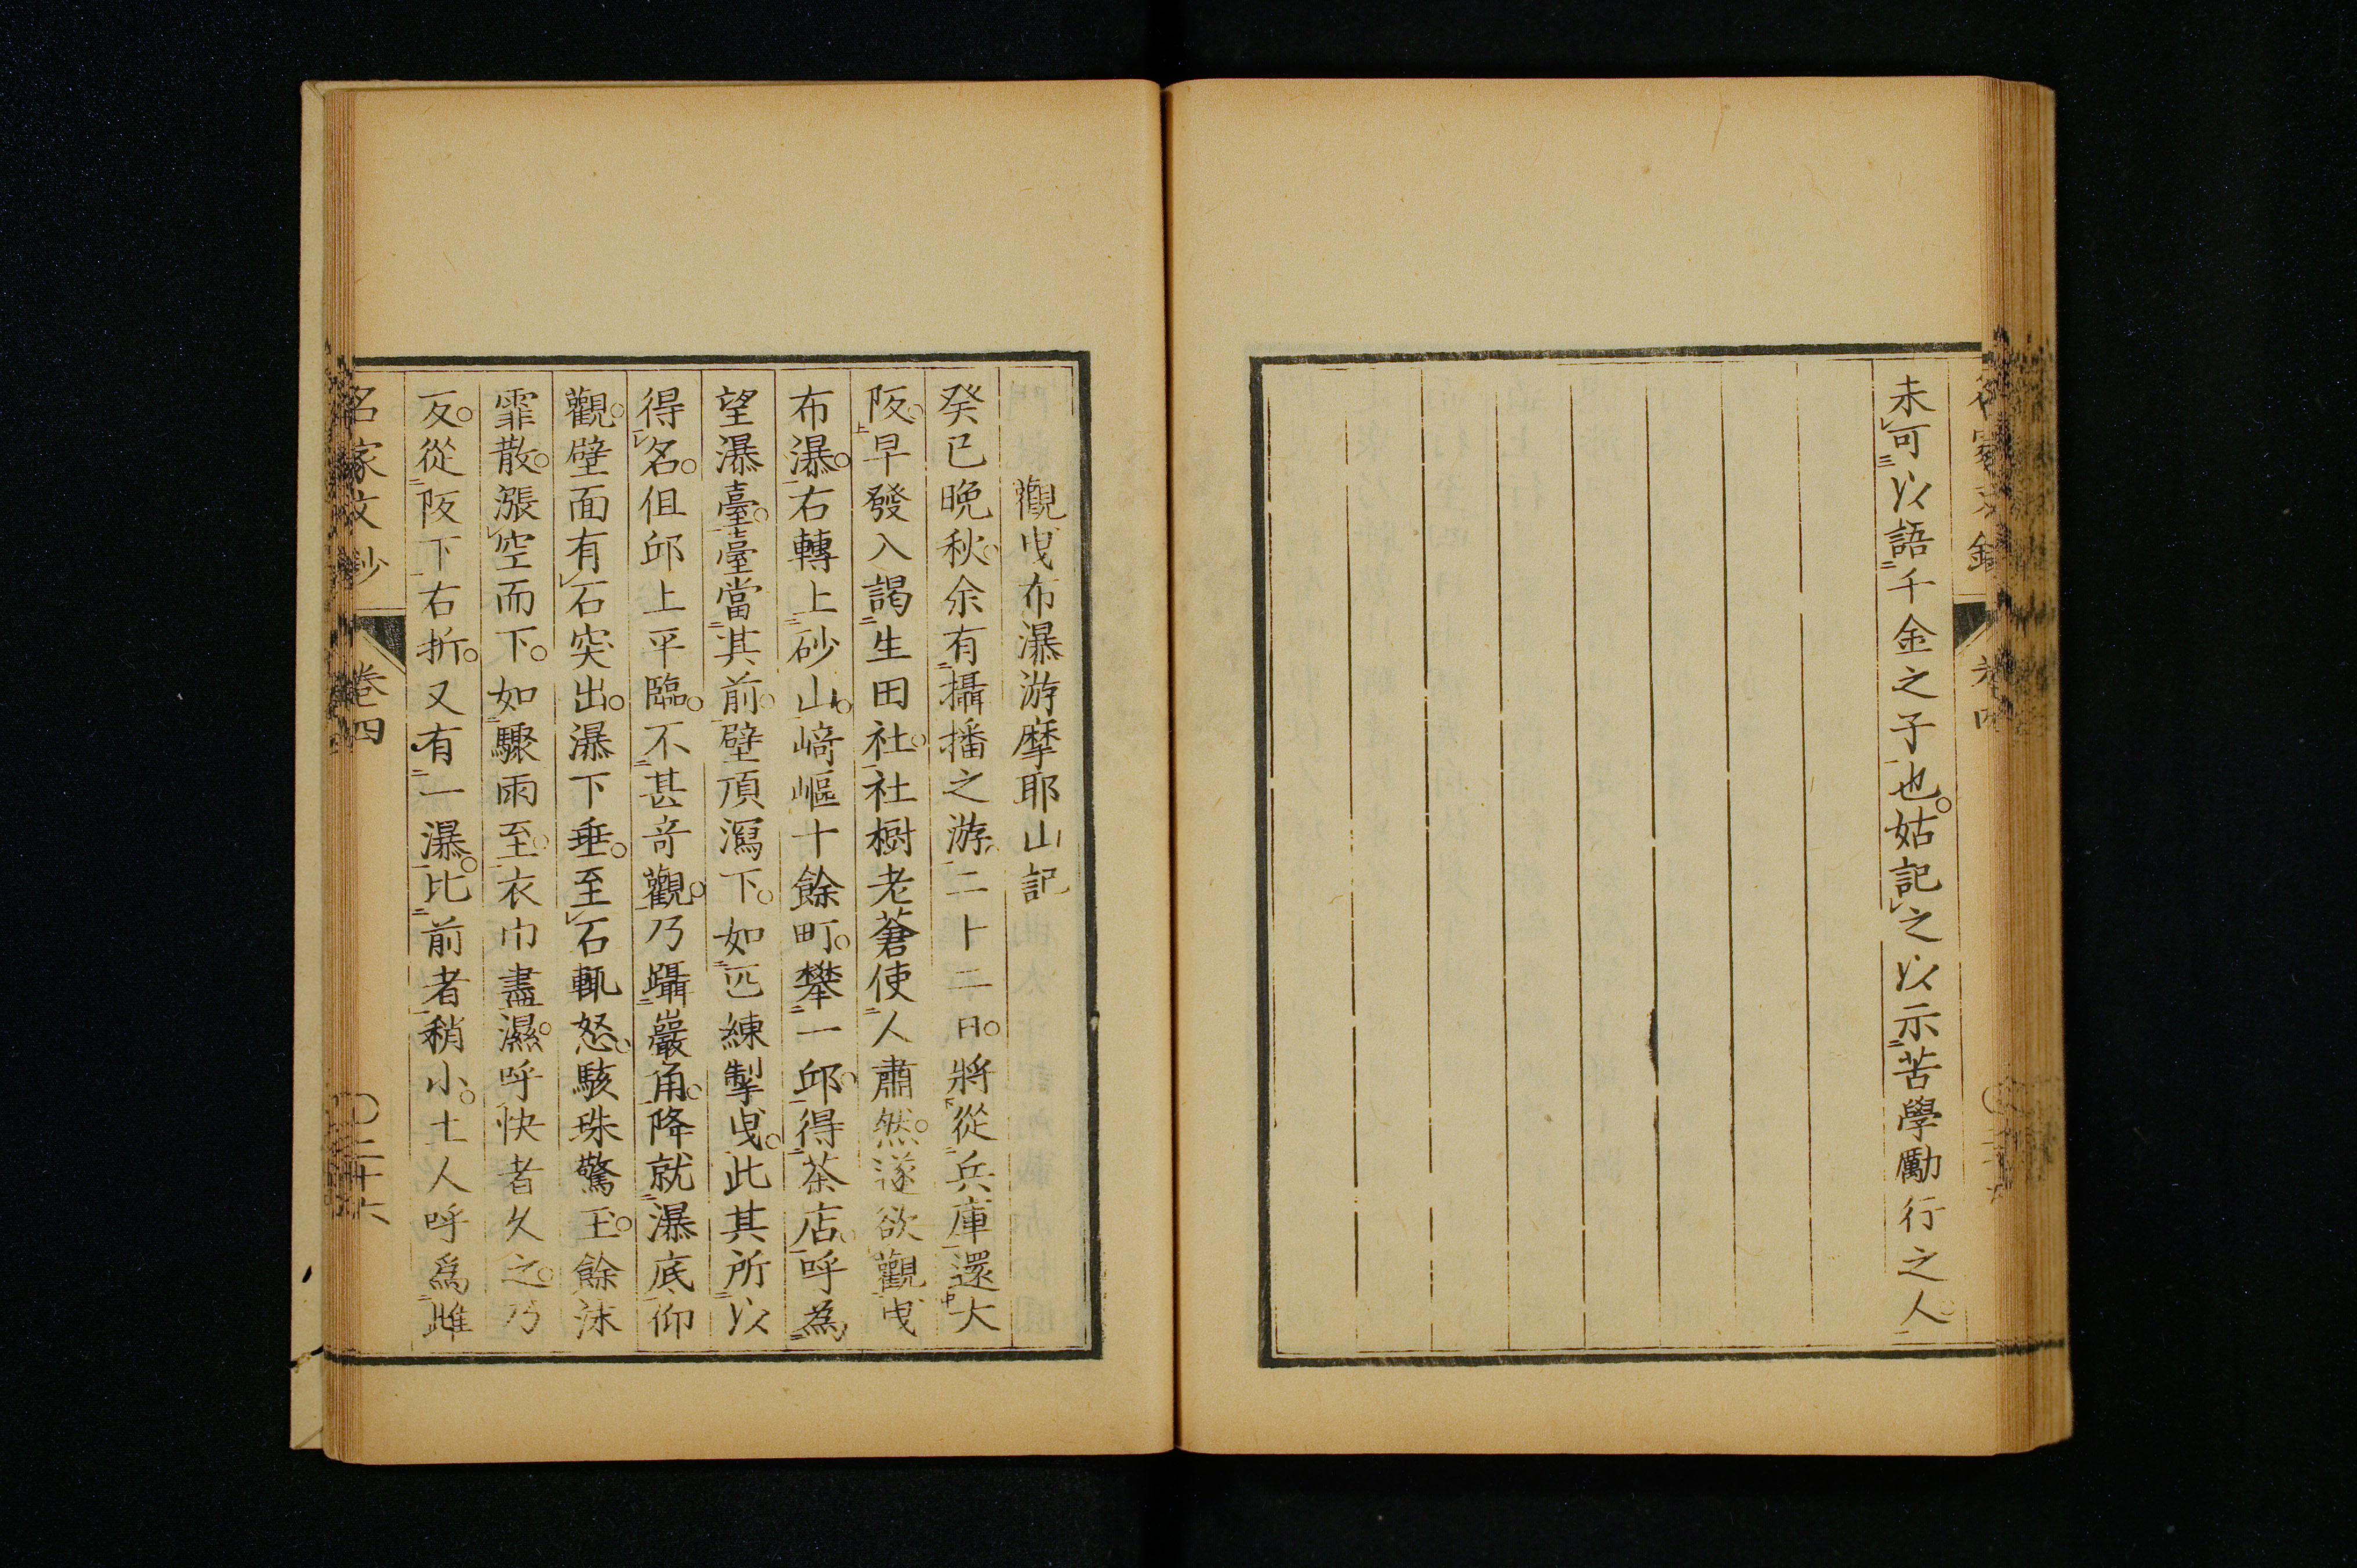 未可以語千金之子也。姑記之以示苦學勵行之人。
觀曳布瀑游摩耶山記
癸巳晚秋。余有攝播之游。二十二日。將從兵庫還大
阪。早發入謁生田社。社樹老蒼使人肅然。遂欲觀曳
布瀑。右轉上砂山。﨑嶇十餘町。攀一邱。得茶店。呼為
望瀑臺。臺當其前。壁頂瀉下。如匹練掣曳。此其所以
得名。但邱上平臨。不甚奇觀。乃躡巖角。降就瀑底仰
觀。壁面有石突出。瀑下垂。至石輒怒。駭珠驚玉。餘沫
霏散。漲空而下。如驟雨至。衣巾盡濕。呼快者久之。乃
反。從阪下右折。又有一瀑。比前者稍小。土人呼爲雌
名家文鈔 卷四 〇二十六